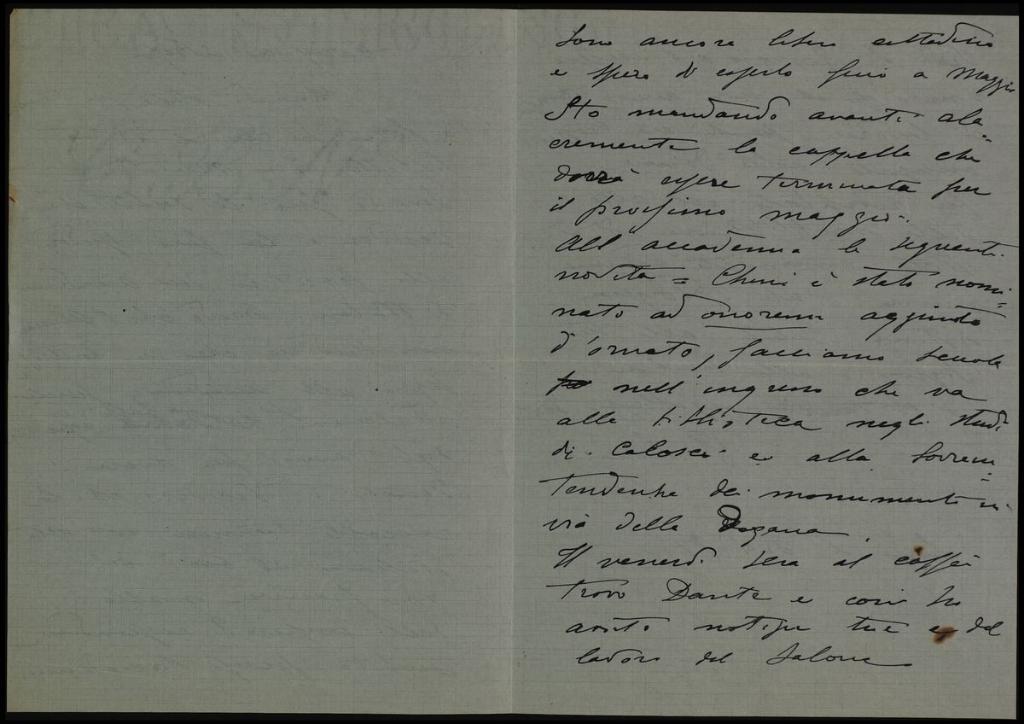 Sono ancora libero cittadino
e spero di esserlo fino a Maggio
Sto mandando avanti ala=
cremente la cappella che
dovrà essere terminata per
il prossimo maggio.
All'accademia le seguenti
novità = Chini è stato nomi=
nato ad onorem aggiunto
d'ornato, facciamo scuola
nell'ingresso che va
alla biblioteca negli studi
di Calosci e alla Sovrain=
tendenza dei monumenti in
via della Dogana.
Il venerdì sera al caffè
trovo Dante e così ho
avuto notizie tue e del
lavoro del Salone